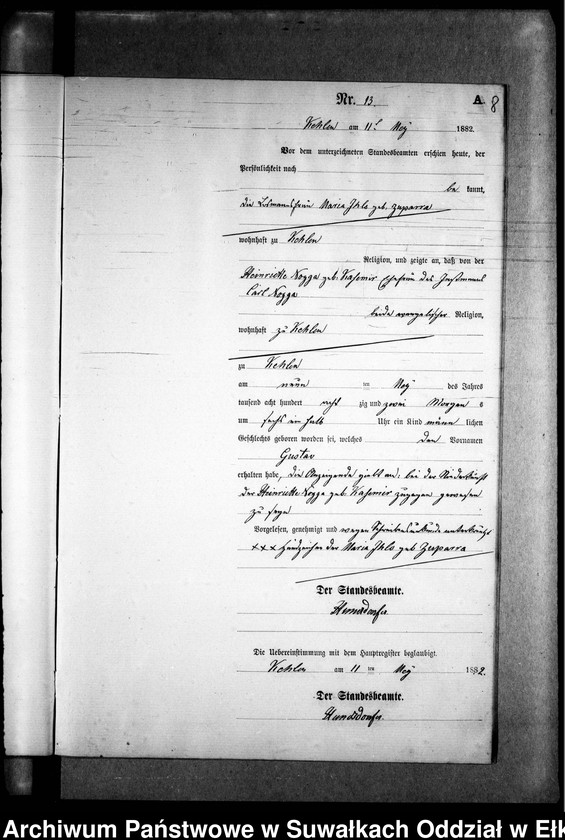 Nr. 13.
A.
8
Kehlen am 11. Mey 1882.
Vor dem unterzeichneten Standesbeamten erschien heute, der
Persönlichkeit nach
be kannt,
die Losmannsfrau Maria Ihlo geb. Zuparra
wohnhaft zu Kehlen
Religion, und zeigte an, daß von der
Heinriette Rogga geb. Kasimir Ehefrau des
Carl Rogga
beide evangelischer Religion,
wohnhaft zu Kehlen
zu Kehlen
am neun ten Mey des Jahres
tausend acht hundert acht zig und zwei Morgens
um sechs ein halb Uhr ein Kind männ lichen
Geschlechts geboren worden sei, welches den Vornamen
Gustav
erhalten habe, die Anzeigende zeigt an: bei der Niederkunft
der Heinriette Rogga geb. Kasimir zugegen gewesen
zu seyn
Vorgelesen, genehmigt und wegen Schreibensunkunde unterkreuzt
+++ Handzeichen der Maria Ihlo geb Zuparra
Der Standesbeamte.
Die Uebereinstimmung mit dem Hauptregister beglaubigt.
Kehlen am 11 ten Mey 1882.
Der Standesbeamte.
Archiwum Państwowe w Suwałkach Oddział w Ełk